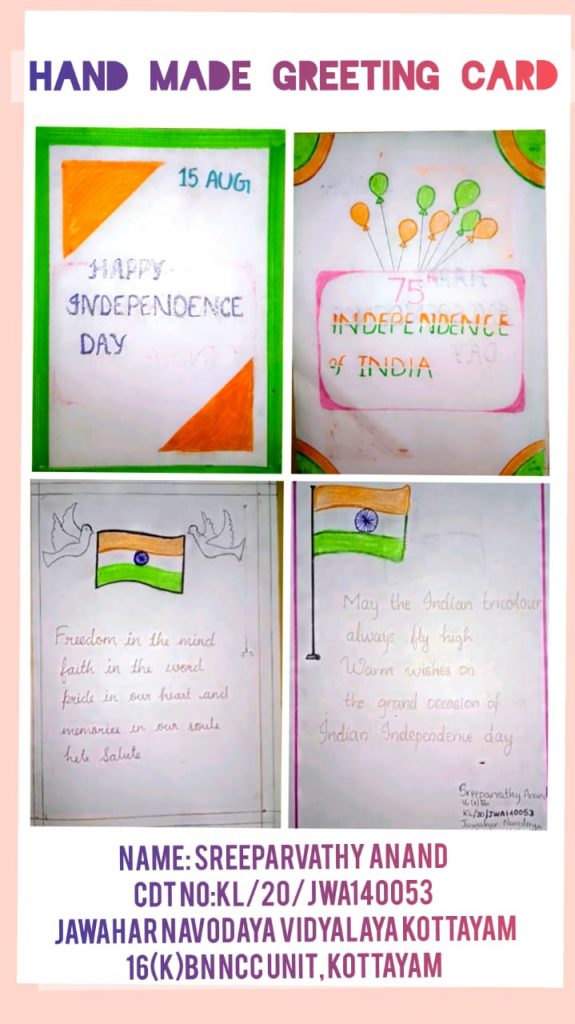 HAND MADE GREETING CARD
15 AUG
HAPPY
INDEPENDENCE
DAY
75
INDEPENDENCE
of INDIA
Freedom in the mind
faith in the word
pride in our heart and
memories in our souls
lets Salute
May the Indian tricolour
always fly high
Warm wishes on
the grand occasion of
Indian Independence day
Sreeparvathy Anand
KL/20/JWA140053
Jawahar Navodaya
NAME: SREEPARVATHY ANAND
CDT NO:KL/20/JWA140053
JAWAHAR NAVODAYA VIDYALAYA KOTTAYAM
16(K)BN NCC UNIT, KOTTAYAM